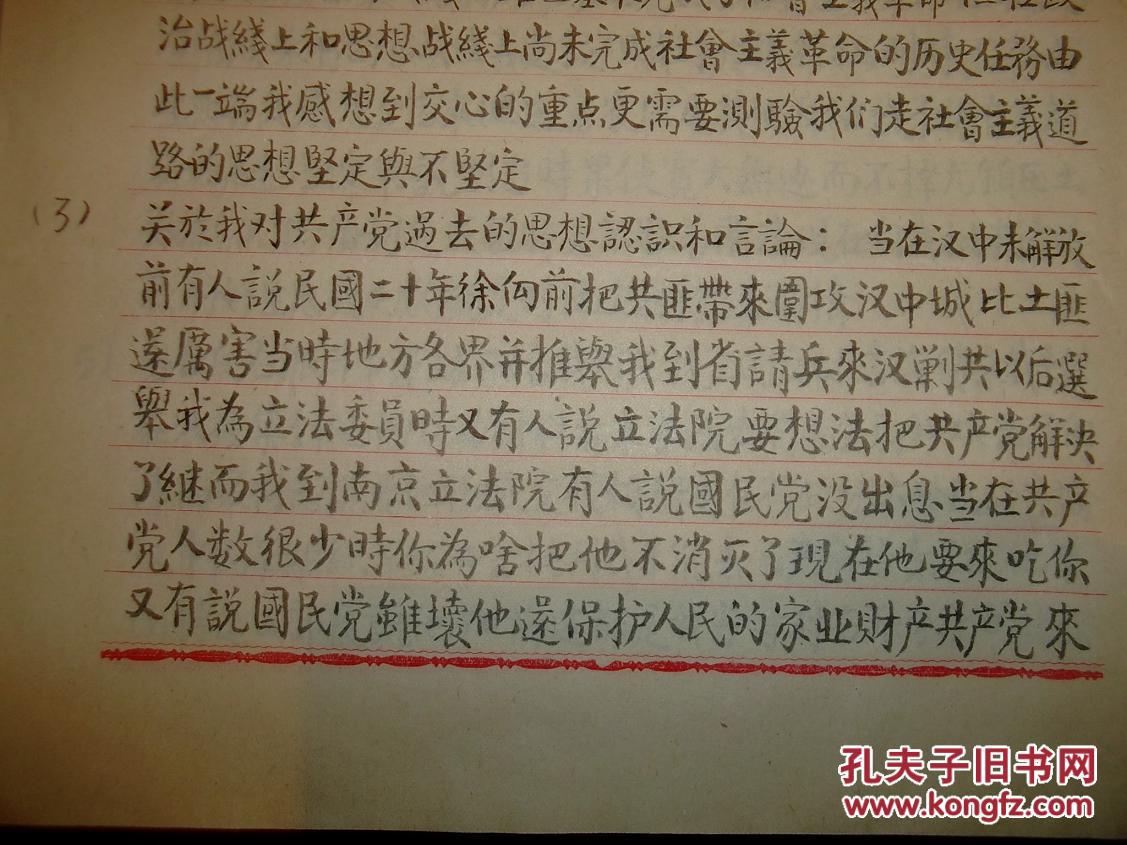 社會主義革命
治战綫上和思想战綫上尚未完成社會主義革命的历史任務由
此一端我感想到交心的重点更需要測驗我们走社會主義道
路的思想堅定與不堅定
(3)
关於我对共产党过去的思想認識和言論：当在汉中未解放
前有人說民國二十年徐向前把共匪帶來圍攻汉中城比土匪
還厲害当時地方各界并推舉我到省請兵來汉剿共以后選
舉我為立法委員時又有人說立法院要想法把共产党解决
了継而我到南京立法院有人說國民党没出息当在共产
党人数很少時你為啥把他不消灭了現在他要來吃你
又有說國民党雖壞他還保护人民的家业財产共产党來
孔夫子旧书网
www.kongfz.com